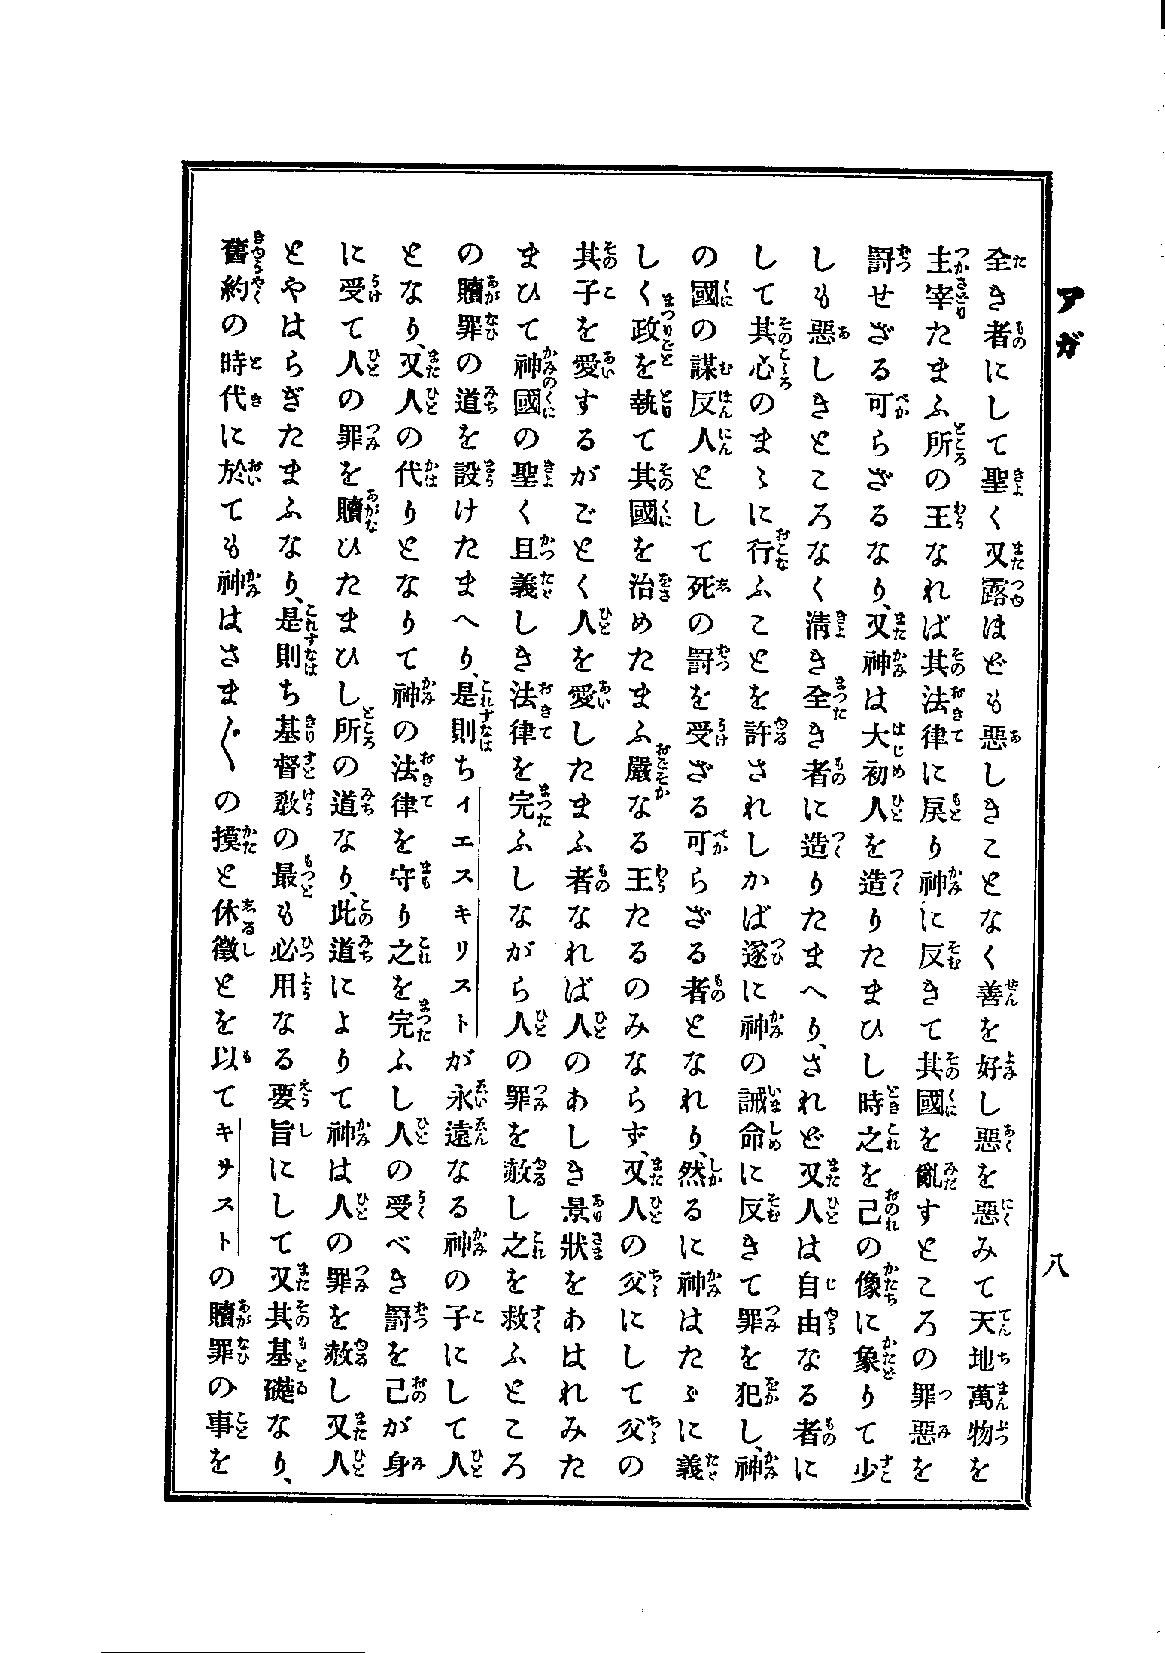 アガ
八
全き者にして聖く又露ほども惡しきことなく善を好し惡を惡みて天地萬物を
主宰たまふ所の王なれば其法律に戻り神に反きて其國を亂すところの罪惡を
罸せざる可らざるなり、又神は大初人を造りたまひし時之を己の像に象りて少
しも惡しきところなく淸き全き者に造りたまへり、されど又人は自由なる者に
して其心のまゝに行ふことを許されしかば遂に神の誡命に反きて罪を犯し、神
の國の謀反人として死の罸を受ざる可らざる者となれり、然るに神はたゞに義
しく政を執て其國を治めたまふ嚴なる王たるのみならず、又人の父にして父の
其子を愛するがごとく人を愛したまふ者なれば人のあしき景狀をあはれみた
まひて神國の聖く且義しき法律を完ふしながら人の罪を赦し之を救ふところ
の贖罪の道を設けたまへり、是則ちイエスキリストが永遠なる神の子にして人
となり、又人の代りとなりて神の法律を守り之を完ふし人の受べき罸を己が身
に受て人の罪を贖ひたまひし所の道なり、此道によりて神は人の罪を赦し又人
とやはらぎたまふなり、是則ち基督敎の最も必用なる要旨にして又其基礎なり、
舊約の時代に於ても神はさま〲の摸と休徵とを以てキリストの贖罪の事を